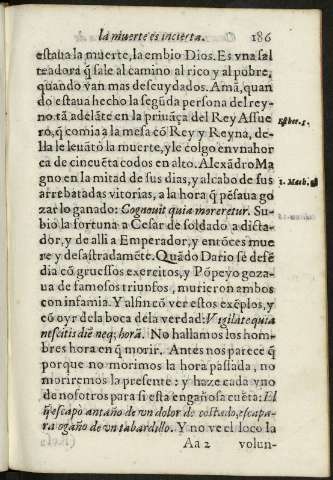 la muerte es incierta. 186
estaua la muerte, la embio Dios. Es vna sal
teadora q̃ sale al camino al rico y al pobre,
quando van mas descuydados. Amã, quan
do estaua hecho la segũda persona del rey-
no tã adelãte en la priuãça del Rey Assue
ro, q̃ comia a la mesa cõ Rey y Reyna, de-
lla le leuãtò la muerte, y le colgo en vna hor
ca de cincuẽta codos en alto. Alexãdro Ma
gno en la mitad de sus dias, y al cabo de sus
arrebatadas vitorias, a la hora q̃ pẽsaua go
zar lo ganado: Cognouit quia moreretur. Su-
biò la fortuna a Cesar de soldado a dicta-
dor, y de alli a Emperador, y entõces mue
re y desastradamẽte. Quãdo Dario se defẽ
dia cõ gruessos exercitos, y Põpeyo goza-
ua de famosos triunfos, murieron ambos
con infamia. Y al fin cõ ver estos exẽplos, y
cõ oyr de la boca dela verdad: Vigilate quia
nescitis diẽ neq; horã. No hallamos los hom-
bres hora en q̃ morir. Antes nos parece q̃
porque no morimos la hora passada, no
moriremos la presente: y haze cada vno
de nosotros para si esta engañosa cuẽta: El
q̃ escapò antaño de vn dolor de costado, escapa-
ra ogaño de vn tabardillo. Y no ve el loco la
Aa 2 volun-
Esther. 5.
1. Mach.